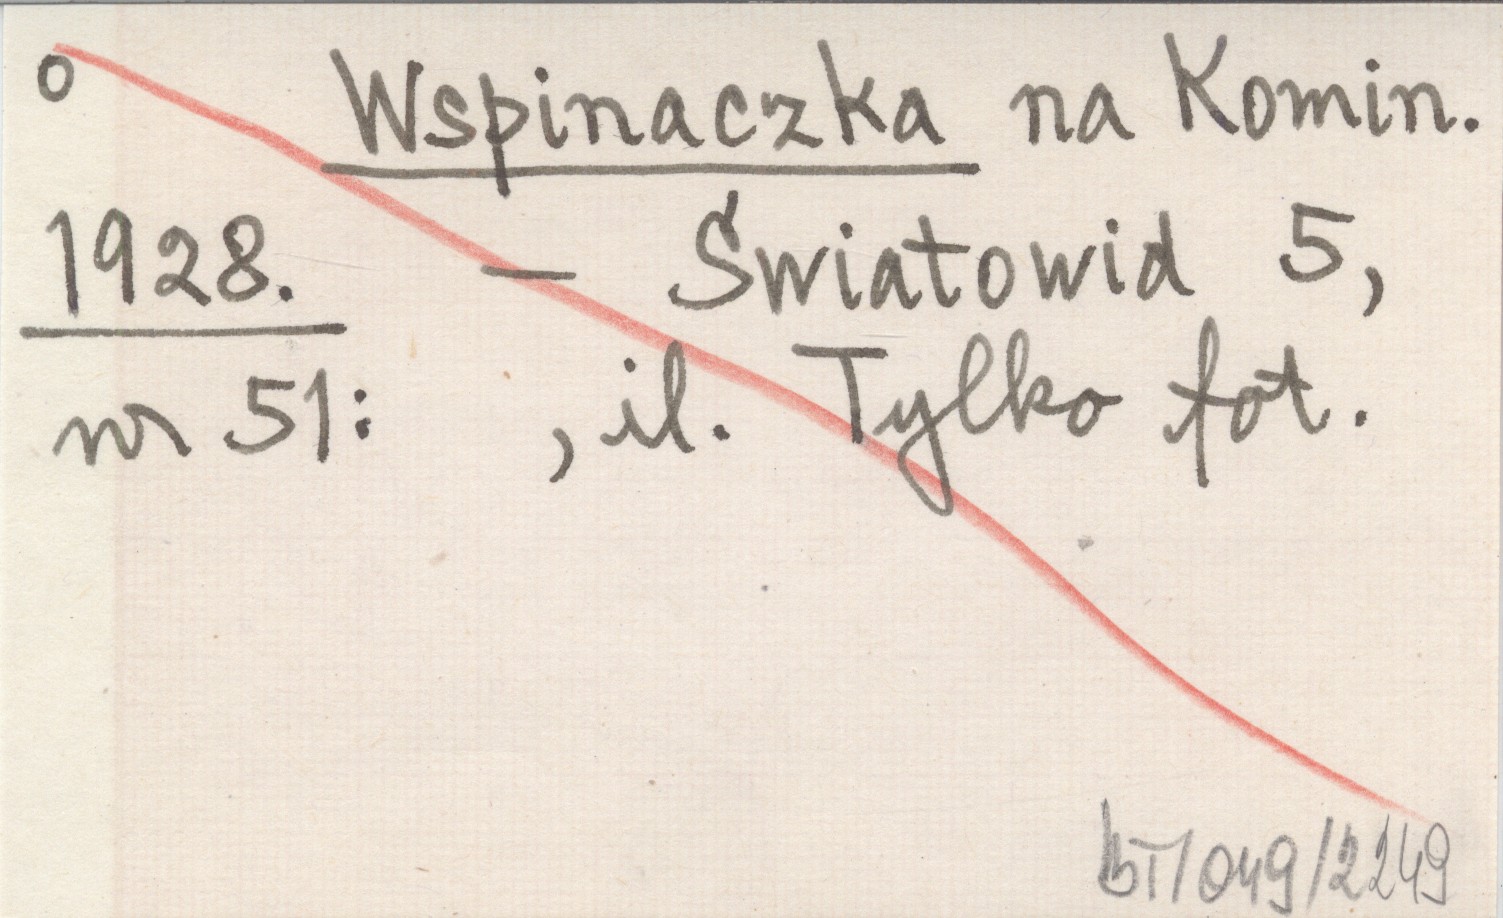 o Wspinaczka na Komin.
1928. — Światowid 5,
nr 51: , il. Tylko fot.
BT/049/2249